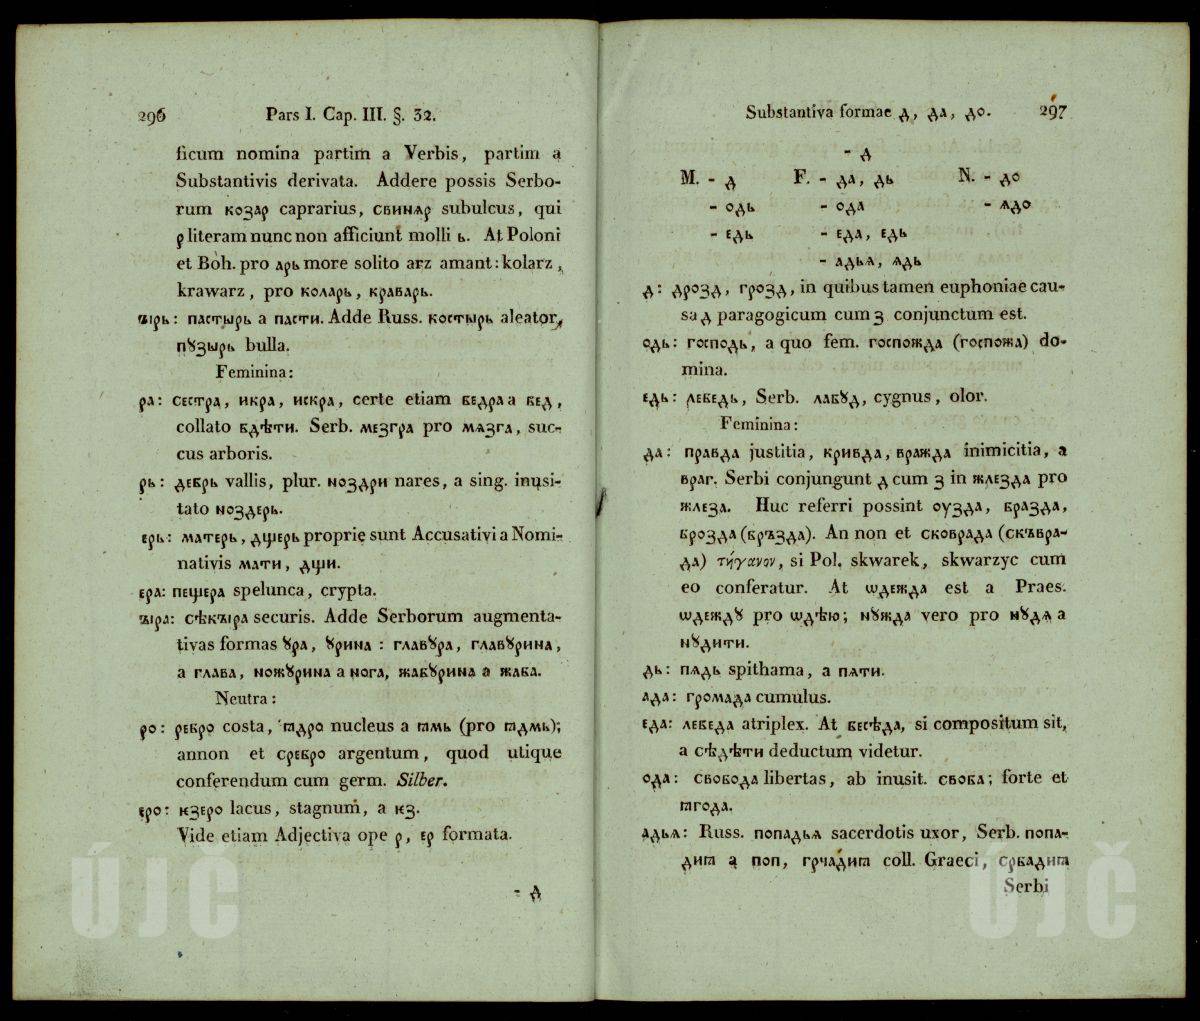 296 Pars I. Cap. III. §. 32.
ficum nomina partim a Verbis, partim a
Substantivis derivata. Addere possis Serbo-
rum козар caprarius, свинѧр subulcus, qui
р literam nunc non afficiunt molli ь. At Poloni
et Boh. pro арь more solito arz amant: kolarz,
krawarz, pro коларь, краварь.
ꙑрь: пастырь a пасти. Adde Russ. костырь aleator,
пꙋзырь bulla.
Feminina:
ра: сестра, икра, искра, certe etiam бедра a бед,
collato бдѣти. Serb. мезгра pro мѧзга, suc-
cus arboris.
рь: дебрь vallis, plur. ноздри nares, a sing. inusi-
tato ноздерь.
ерь: матерь, дщерь proprie sunt Accusativi a Nomi-
nativis мати, дщи.
ера: пещера spelunca, crypta.
ꙑра: сѣкꙑра securis. Adde Serborum augmenta-
tivas formas ꙋра, ꙋрина: главꙋра, главꙋрина,
a глава, ножꙋрина a нога, жабꙋрина a жаба.
Neutra:
ро: ребро costa, ꙗдро nucleus a ꙗмь (pro ꙗдмь);
annon et сребро argentum, quod utique
conferendum cum germ. Silber.
еро: ѥзеро lacus, stagnum, a ѥз.
Vide etiam Adjectiva ope р, ер formata.
- д
Substantiva formae д, да, до. 297
- д
M. - д F. - да, дь N. - до
- одь - ода - ѧдо
- едь - еда, едь
- адьѧ, ѧдь
д: дрозд, грозд, in quibus tamen euphoniae cau-
sa д paragogicum cum з conjunctum est.
одь: господь, a quo fem. госпожда (госпожа) do-
mina.
едь: лебедь, Serb. лабꙋд, cygnus, olor.
Feminina:
да: правда justitia, кривда, вражда inimicitia, a
враг. Serbi conjungunt д cum з in жлезда pro
жлеза. Huc referri possint оузда, бразда,
брозда (бръзда). An non et сковрада (скъвра-
да) τήγανον, si Pol. skwarek, skwarzyc cum
eo conferatur. At ѡдежда est a Praes.
ѡдеждꙋ pro ѡдѣю; нꙋжда vero pro нꙋдѧ a
нꙋдити.
дь: пѧдь spithama, a пѧти.
ада: громада cumulus.
еда: лебеда atriplex. At бесѣда, si compositum sit,
a сѣдѣти deductum videtur.
ода: свобода libertas, ab inusit. своба; forte et
ꙗгода.
адьѧ: Russ. попадьѧ sacerdotis uxor, Serb. попа-
диꙗ a поп, грчадиꙗ coll. Graeci, србадиꙗ
Serbi
ÚJČ
ÚJČ